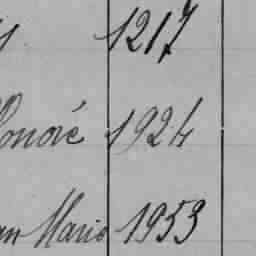 1217
Honoré 1924
an Marie 1953